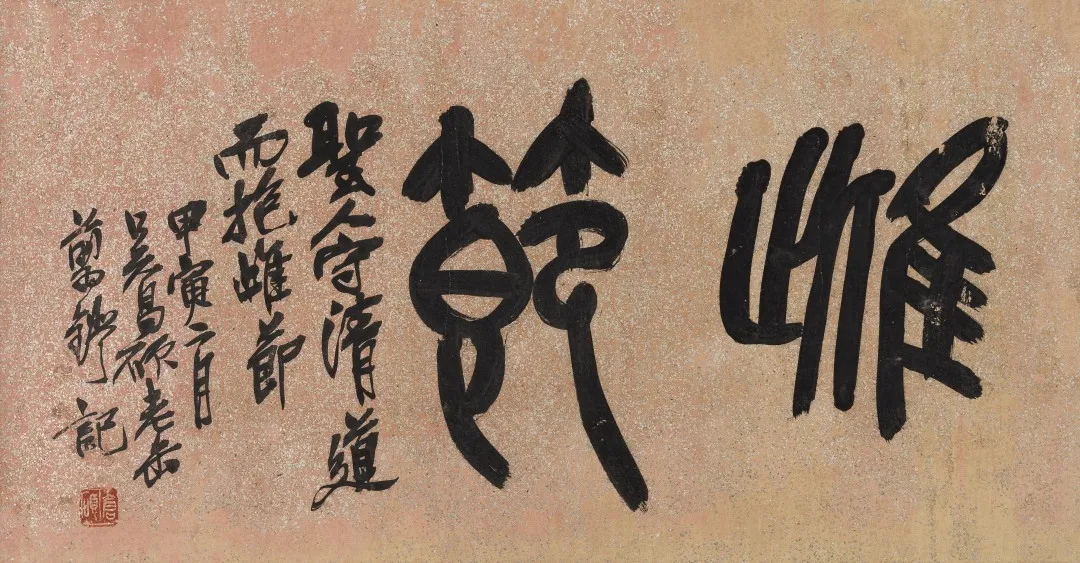 雌節
聖人守清道
而抱雌節
甲寅二月
吳昌碩老缶
翦鐙記